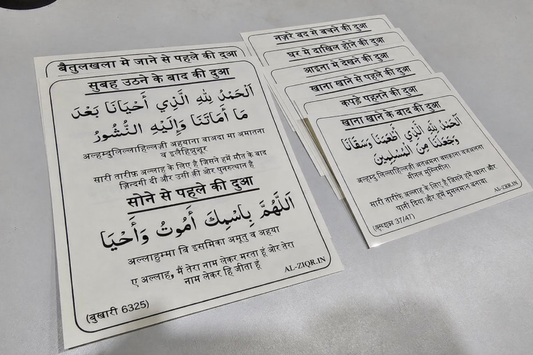 बैतुलखला मे जाने से पहले की दुआ
सुबह उठने के बाद की दुआ
اَلْحَمْدُ لِلّٰهِ الَّذِي أَحْيَانَا بَعْدَ
مَا أَمَاتَنَا وَإِلَيْهِ النُّشُورُ
अल्हम्दुलिल्लाहिल्लज़ी अहयाना बाअदा मा अमातना
व इलैहिन्नुशूर
सारी तारीफ़ अल्लाह के लिए है जिसने हमें मौत के बाद
ज़िन्दगी दी और उसी की ओर पुनरुत्थान है
सोने से पहले की दुआ
اَللّٰهُمَّ بِاسْمِكَ أَمُوتُ وَأَحْيَا
अल्लाहुम्मा बि इसमिका अमूतु व अहया
ए अल्लाह, मैं तेरा नाम लेकर मरता हूं और तेरा
नाम लेकर हि जीता हूं
AL-ZIQR.IN
(बुखारी 6325)
नज़रे बद से बचने की दुआ
घर में दाखिल होने की दुआ
आइना में देखने की दुआ
खाना खाने से पहले की दुआ
कपड़े पहनने की दुआ
खाना खाने के बाद की दुआ
اَلْحَمْدُ لِلّٰهِ الَّذِي أَطْعَمَنَا وَسَقَانَا
وَجَعَلَنَا مِنَ الْمُسْلِمِينَ
अल्हम्दु लिल्लाहिल्लज़ी अतअमना वसक़ाना वजअलना
मीनल मुस्लिमीन।
सारी तारीफें अल्लाह के लिए है जिसने हमे खाना और
पानी दिया और हमें मुसलमान बनाया
AL-ZIQR.IN
37/47)